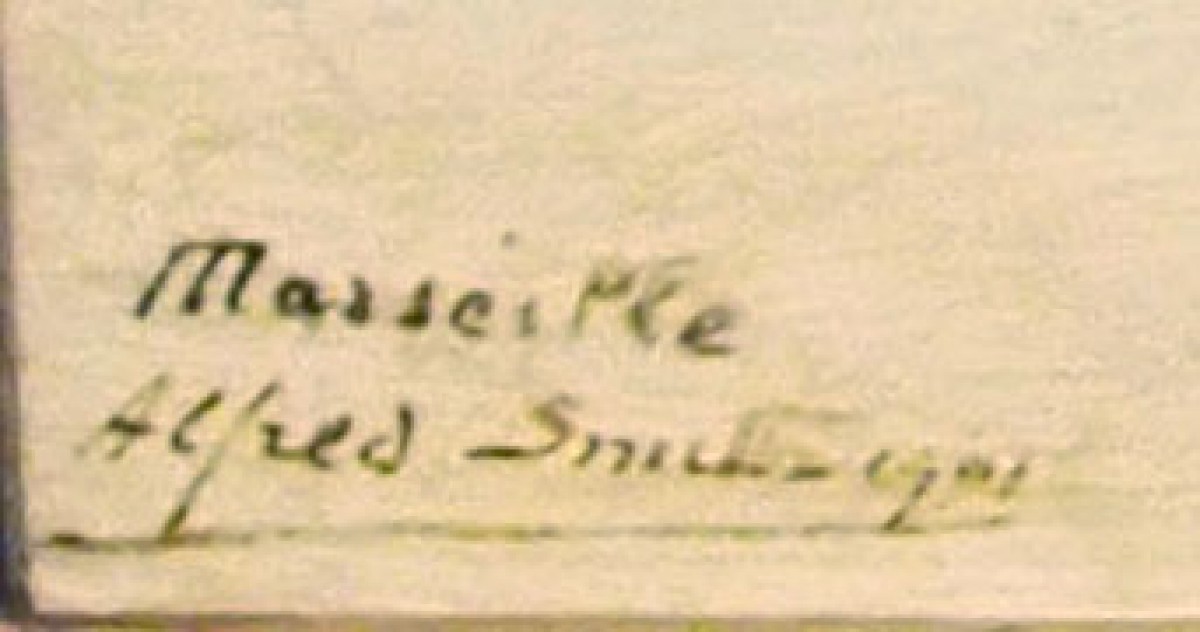 Marseille
Alfred Smith - 1901